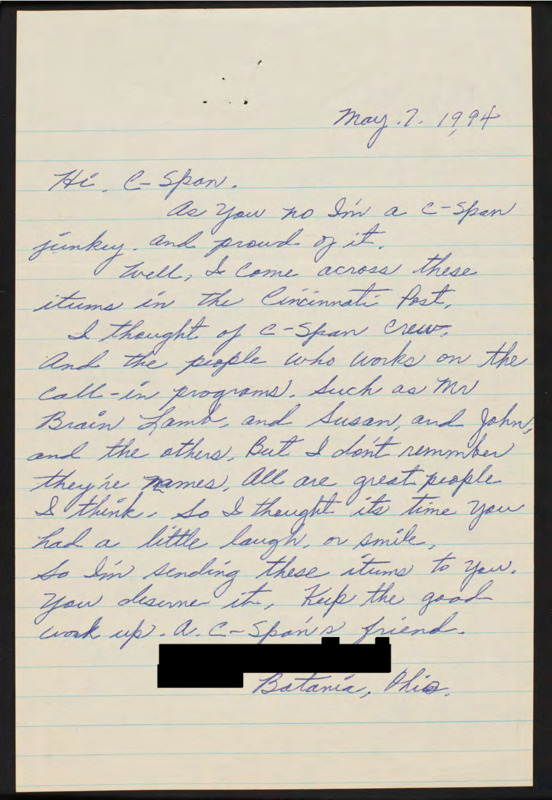 May. 7. 1994
Hi. C-Span.
As You no I'm a C-Span
junkey. and proud of it.
Well, I come across these
itums in the Cincinnati Post,
I thought of C-Span crew.
And the people who works on the
call-in programs. Such as Mr
Brain Lamb, and Susan, and John,
and the others. But I don't remmber
they're names, All are great people
I think. So I thought its time You
had a little laugh, or smile,
So I'm sending these itums to You.
You diserve it, Keep the good
work up. A. C-Span's friend.
Batania, Ohio.